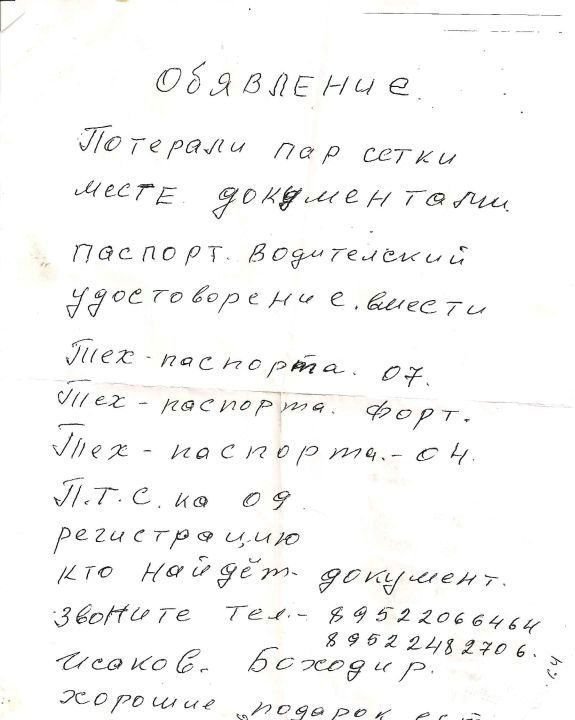 Обявление.
Потерали пар сетки
месте документами.
паспорт. Водителский
удостоворение. вмести
Тех-паспорта. 07.
Тех-паспорта. Форт.
Тех-паспорта.-04.
П.Т.С. на 09
регистрацию
кто найдёт документ.
звоните тел.- 89522066464
89522482706.
Исаков. Боходир.
хорошие подарок